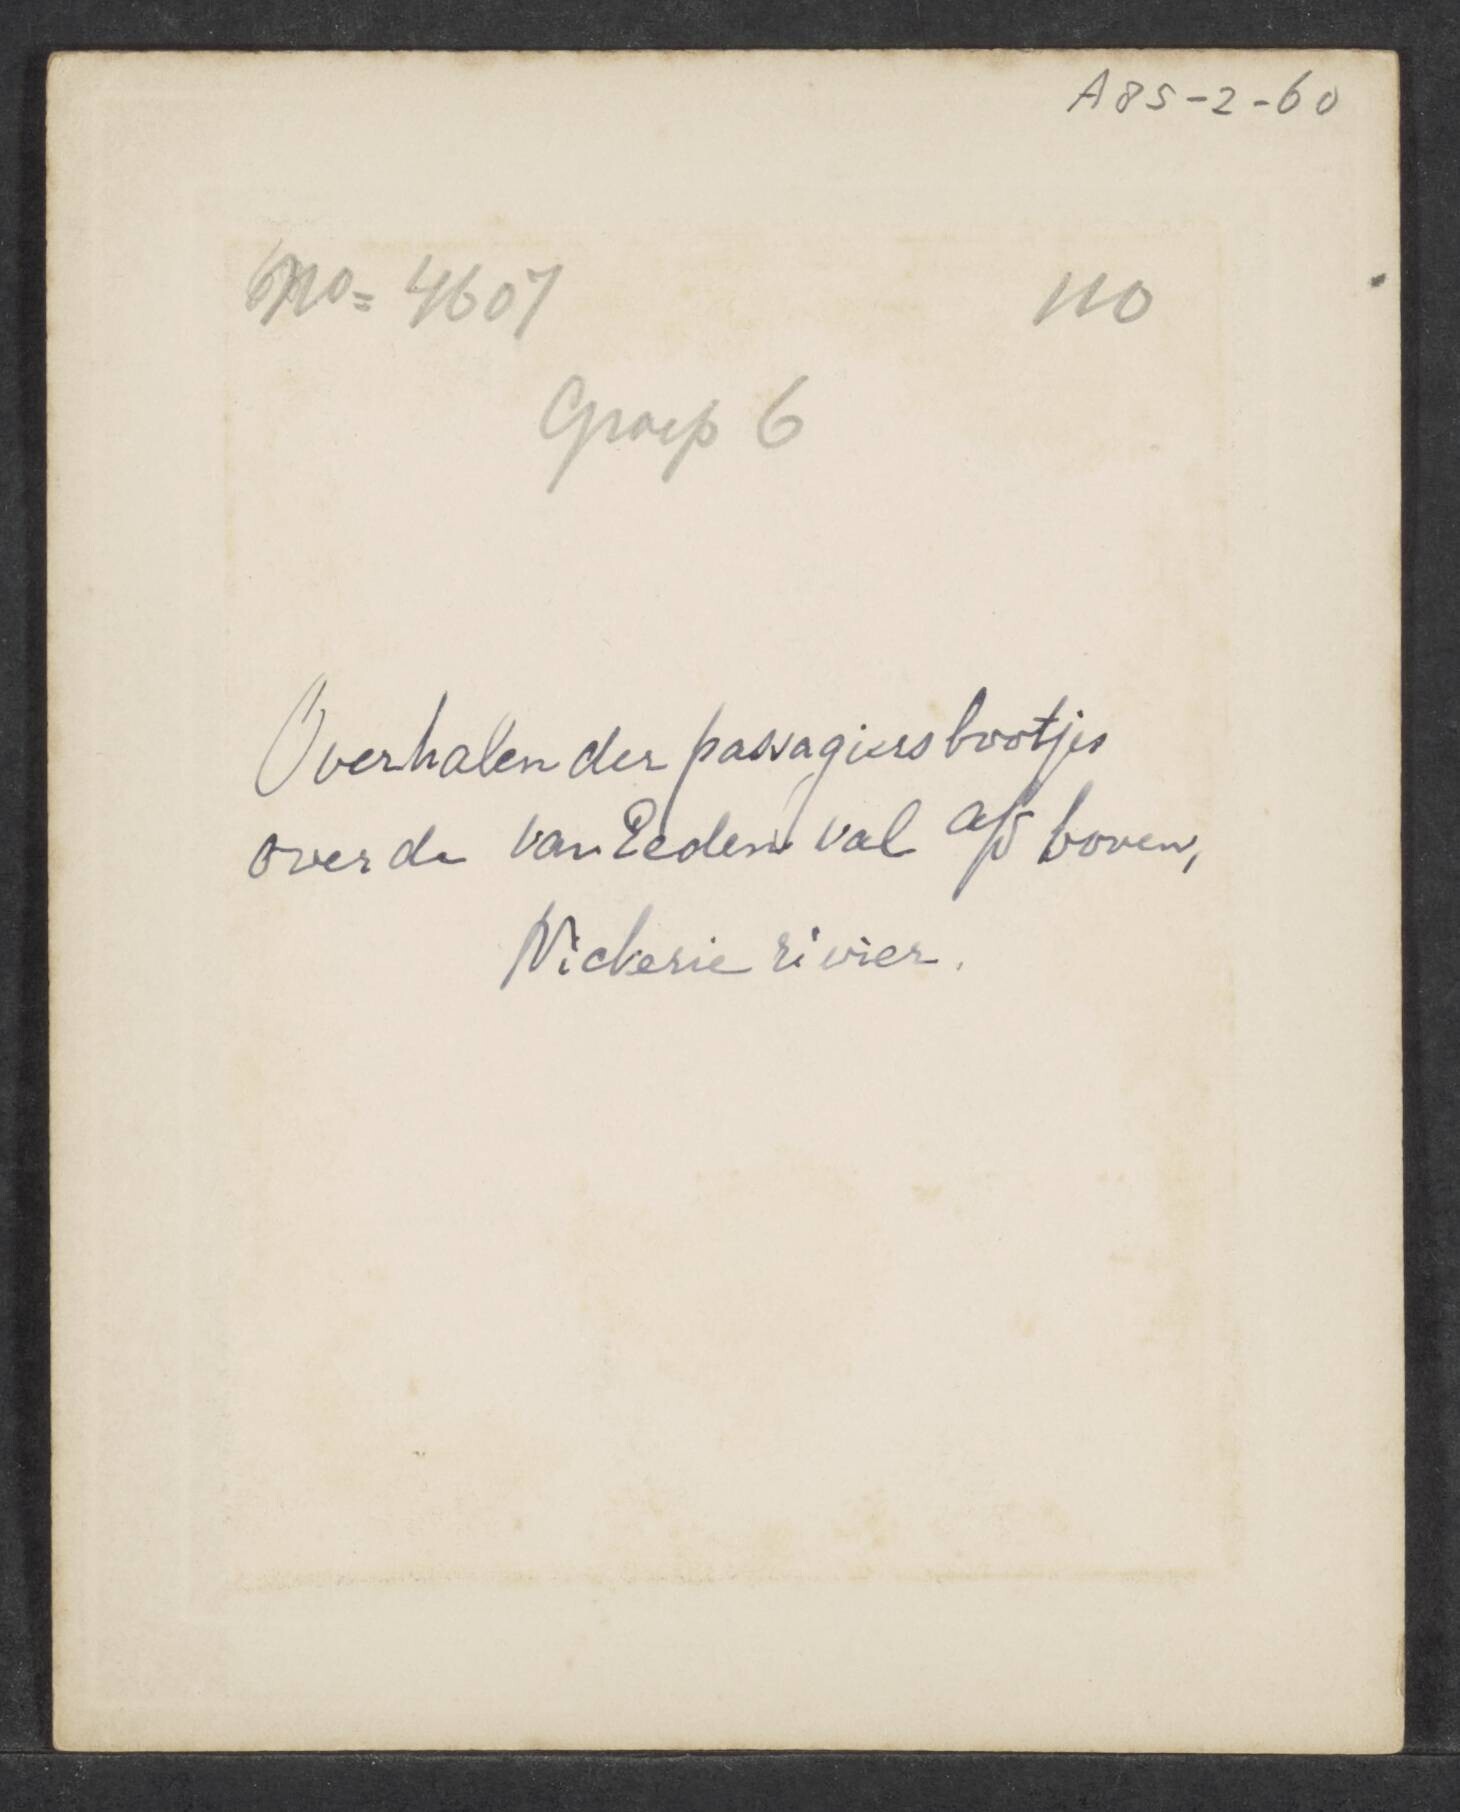 A85-2-60
No= 4607 110
Groep 6
Overhalen der passagiersbootjes
over de van Eeden val
boven,
Nickerie rivier.